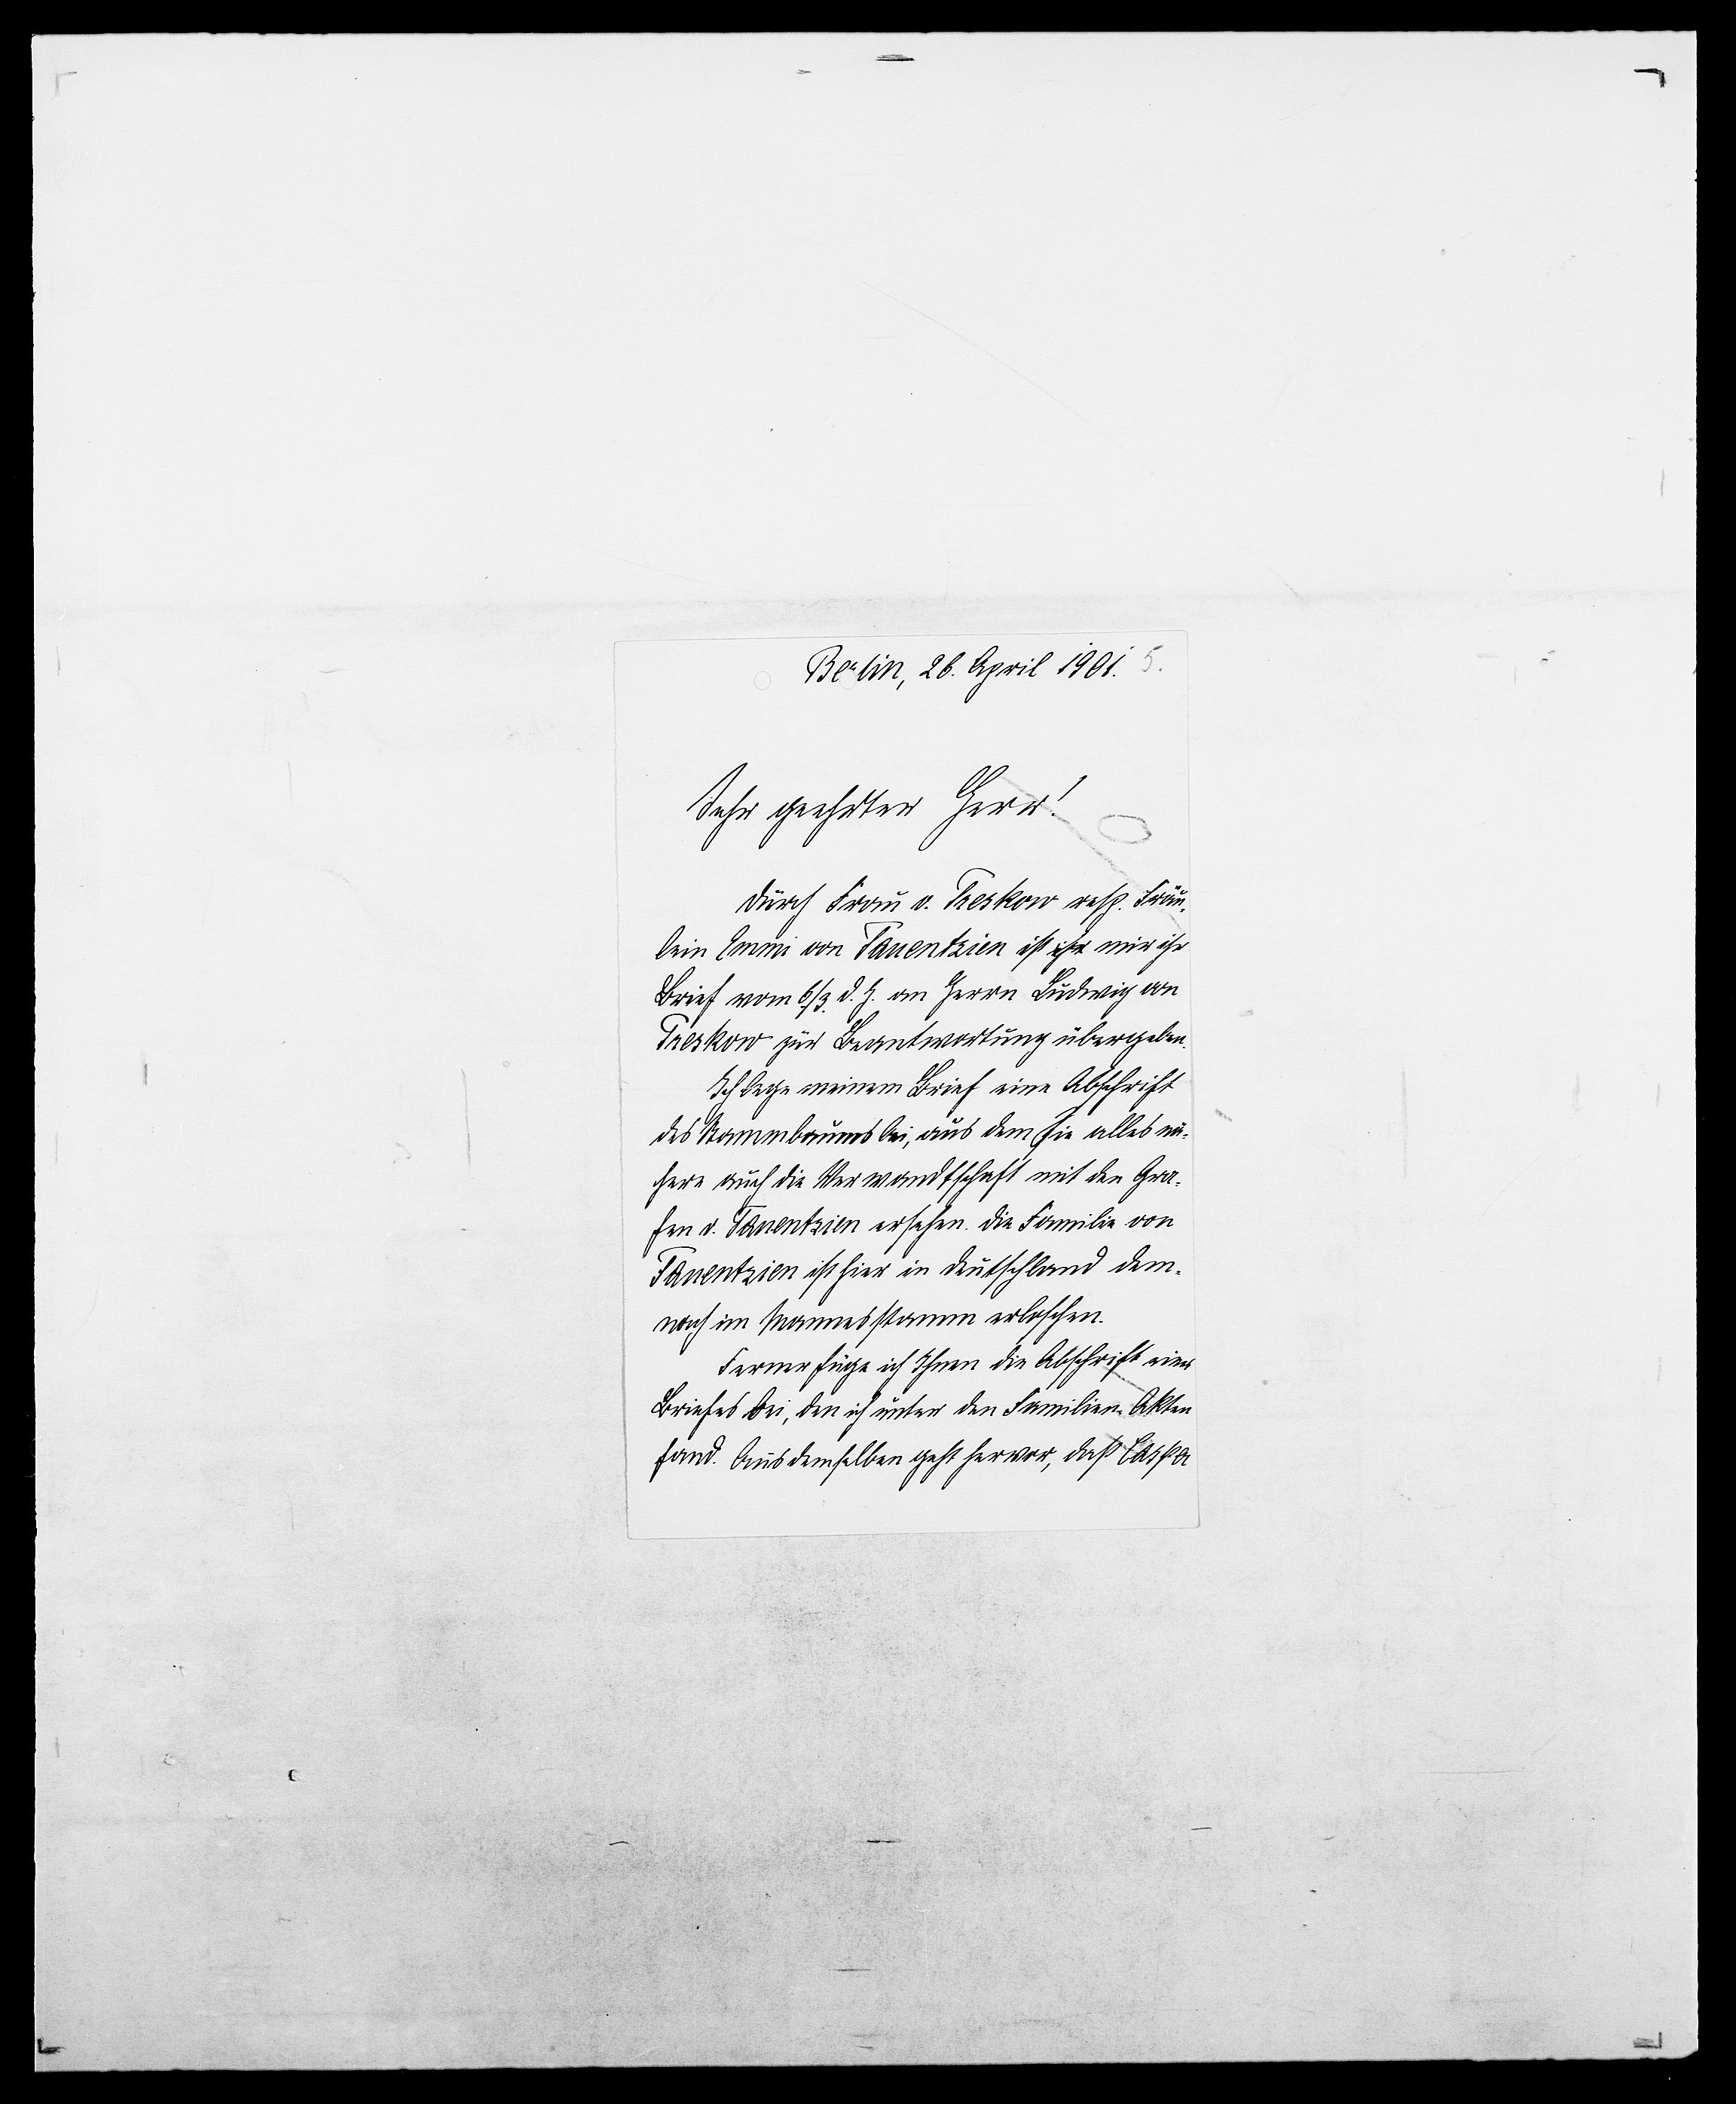 Berlin, 26. April 1901. 5.
Sehr geehrter Herr!
Durch Frau v. Treskow resp. Fräu-
lein Emmi von Tauentzien ist mir ihr
Brief vom 6/3. d. J. an Herrn Ludwig von
Treskow zur Beantwortung übergeben.
Ich lege meinem Brief eine Abschrift
des Stammbaums bei, aus dem Sie alles nä-
here auch die Verwandtschaft mit den Gra-
fen v. Tauentzien ersehen. Die Familie von
Tauentzien ist hier in Deutschland dem-
nach im Mannesstamm erloschen.
Ferner füge ich Ihnen die Abschrift eines
Briefes bei, den ich unter den Familien-Akten
fand. Aus demselben geht hervor, daß Caspar